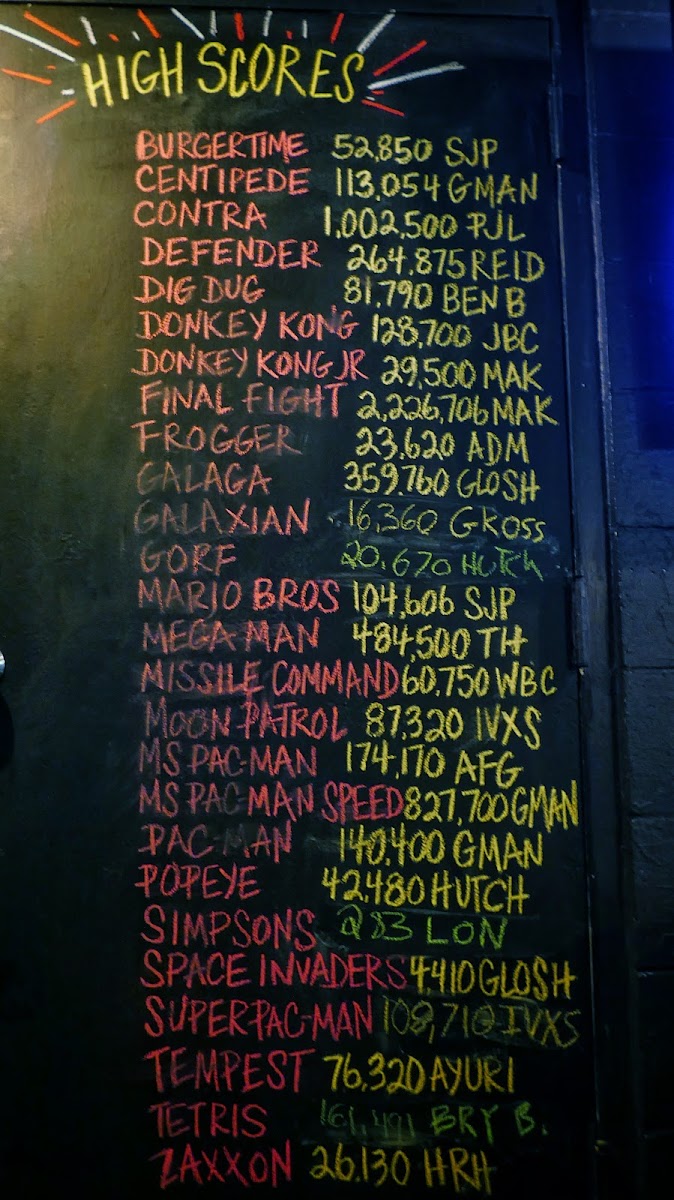 HIGH SCORES
BURGERTIME 52,850 SJP
CENTIPEDE 113,054 GMAN
CONTRA 1,002,500 PJL
DEFENDER 264,875 REID
DIG DUG 81,790 BEN B
DONKEY KONG 128,700 JBC
DONKEY KONG JR 29,500 MAK
FINAL FIGHT 2,226,706 MAK
FROGGER 23,620 ADM
GALAGA 359,760 GLOSH
GALAXIAN 16,360 GKOSS
GORF 20,670 HUTCH
MARIO BROS 104,606 SJP
MEGA MAN 484,500 TH
MISSILE COMMAND 60,750 WBC
MOON PATROL 87,320 IVXS
MS PAC-MAN 174,170 AFG
MS PAC-MAN SPEED 827,700 GMAN
PAC-MAN 140,400 GMAN
POPEYE 42,480 HUTCH
SIMPSONS 283 LON
SPACE INVADERS 4,410 GLOSH
SUPER PAC-MAN 108,710 IVXS
TEMPEST 76,320 AYURI
TETRIS 161,491 BRY B.
ZAXXON 26,130 HRH